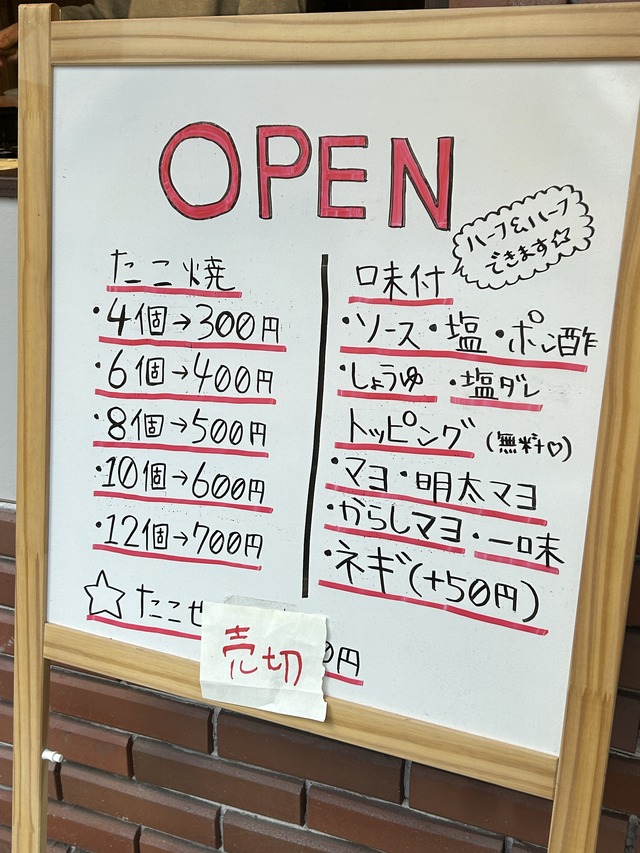 OPEN
ハーフ&ハーフ
できます☆
たこ焼
・4個→300円
・6個→400円
・8個→500円
・10個→600円
・12個→700円
☆たこせ
売切
0円
口味付
・ソース・塩・ポン酢
・しょうゆ・塩ダレ
トッピング(無料♡)
・マヨ・明太マヨ
・からしマヨ・一味
・ネギ(+50円)